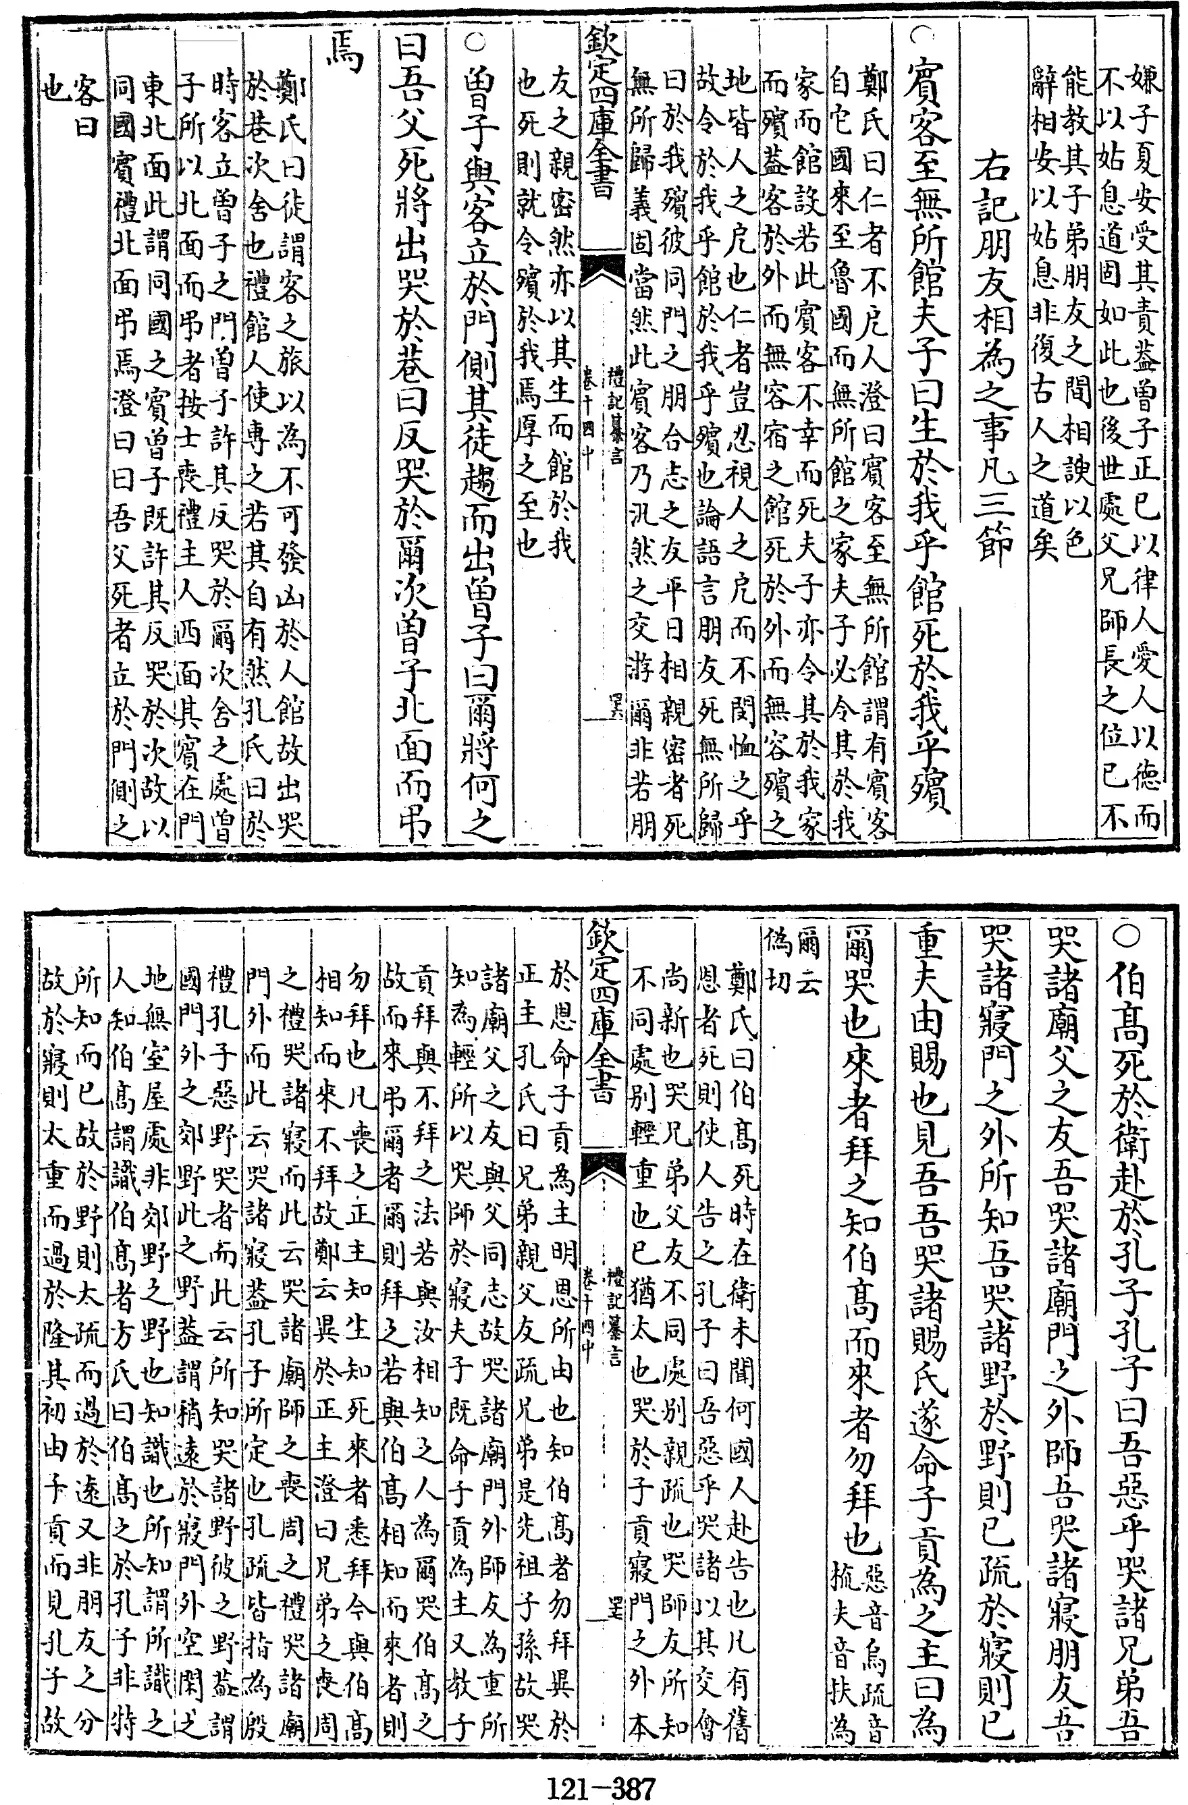 嫌子夏安受其責葢曽子正已以律人愛人以德而
不以姑息道固如此也後世處父兄師長之位已不
能教其子弟朋友之間相諛以色
辭相安以姑息非復古人之道矣
右記朋友相為之事凡三節
○賓客至無所館夫子曰生於我乎館死於我乎殯
鄭氏曰仁者不戹人澄曰賓客至無所館謂有賓客
自它國來至魯國而無所館之家夫子必令其於我
家而館設若此賓客不幸而死夫子亦令其於我家
而殯葢客於外而無容宿之館死於外而無容殯之
地皆人之戹也仁者豈忍視人之戹而不閔恤之乎
故令於我乎館於我乎殯也論語言朋友死無所歸
曰於我殯彼同門之朋合志之友平日相親密者死
無所歸義固當然此賓客乃汎然之交游爾非若朋
欽定四庫全書
禮記纂言
卷十四中
友之親密然亦以其生而館於我
也死則就令殯於我焉厚之至也
○曽子與客立於門側其徒趨而出曽子曰爾將何之
曰吾父死將出哭於巷曰反哭於爾次曽子北面而弔
焉
鄭氏曰徒謂客之旅以為不可發凶於人館故出哭
於巷次舍也禮館人使專之若其自有然孔氏曰於
時客立曽子之門曽子許其反哭於爾次舍之處曽
子所以北面而弔者按士喪禮主人西面其賓在門
東北面此謂同國之賓曽子既許其反哭於次故以
同國賓禮北面弔焉澄曰曰吾父死者立於門側之
客曰
也
○伯髙死於衛赴於孔子孔子曰吾惡乎哭諸兄弟吾
哭諸廟父之友吾哭諸廟門之外師吾哭諸寢朋友吾
哭諸寢門之外所知吾哭諸野於野則已疏於寢則已
重夫由賜也見吾吾哭諸賜氏遂命子貢為之主曰為
爾哭也來者拜之知伯髙而來者勿拜也惡音烏疏音
梳夫音扶為
爾云
偽切
鄭氏曰伯髙死時在衛未聞何國人赴告也凡有舊
恩者死則使人告之孔子曰吾惡乎哭諸以其交會
尚新也哭兄弟父友不同處别親疏也哭師友所知
不同處别輕重也已猶太也哭於子貢寢門之外本
欽定四庫全書
禮記纂言
卷十四中
於恩命子貢為主明恩所由也知伯髙者勿拜異於
正主孔氏曰兄弟親父友疏兄弟是先祖子孫故哭
諸廟父之友與父同志故哭諸廟門外師友為重所
知為輕所以哭師於寢夫子既命子貢為主又教子
貢拜與不拜之法若與汝相知之人為爾哭伯髙之
故而來弔爾者爾則拜之若與伯髙相知而來者則
勿拜也凡喪之正主知生知死來者悉拜今與伯髙
相知而來不拜故鄭云異於正主澄曰兄弟之喪周
之禮哭諸寢而此云哭諸廟師之喪周之禮哭諸廟
門外而此云哭諸寢葢孔子所定也孔疏皆指為殷
禮孔子惡野哭者而此云所知哭諸野彼之野葢謂
國門外之郊野此之野葢謂稍遠於寢門外空閑之
地無室屋處非郊野之野也知識也所知謂所識之
人知伯髙謂識伯髙者方氏曰伯髙之於孔子非特
所知而已故於野則太疏而過於遠又非朋友之分
故於寢則太重而過於隆其初由子貢而見孔子故
121-387